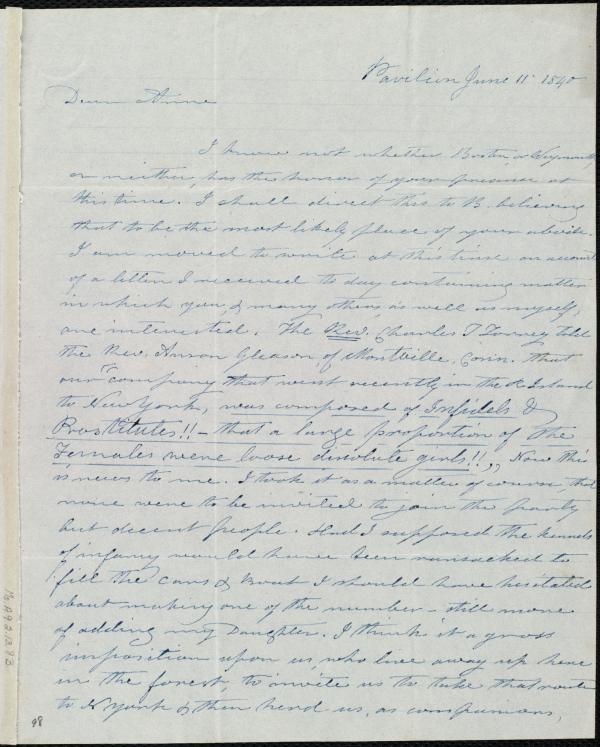 Pavilion June 11 1840
Dear Anne
I know not whether Boston, or Weymouth,
or neither, has the honor of your presence at
this time. I shall direct this to B. believing
that to be the most likely place of your abode.
I am moved to write at this time on account
of a letter I received to day containing matter
in which you, & many others, as well as myself,
are interested. The Rev. Charles T Torrey told
the Rev. Anson Gleason of Montville, Conn. that
our "company that went recently in the R Island
to New York, was composed of Infidels &
Prostitutes!! - that a large proportion of the
Females were loose dissolute girls!!," Now this
is news to me. I took it as a matter of course, that
none were to be invited to join the party
but decent people. Had I supposed the kennels
of infamy would have been ransacked to
fill the cars & Boat I should have hesitated
about making one of the number - still more
of adding my Daughter. I think it a gross
imposition upon us, who live away up here
in the forest, to invite us to take that route
to N York & then hend us, as companions,
98